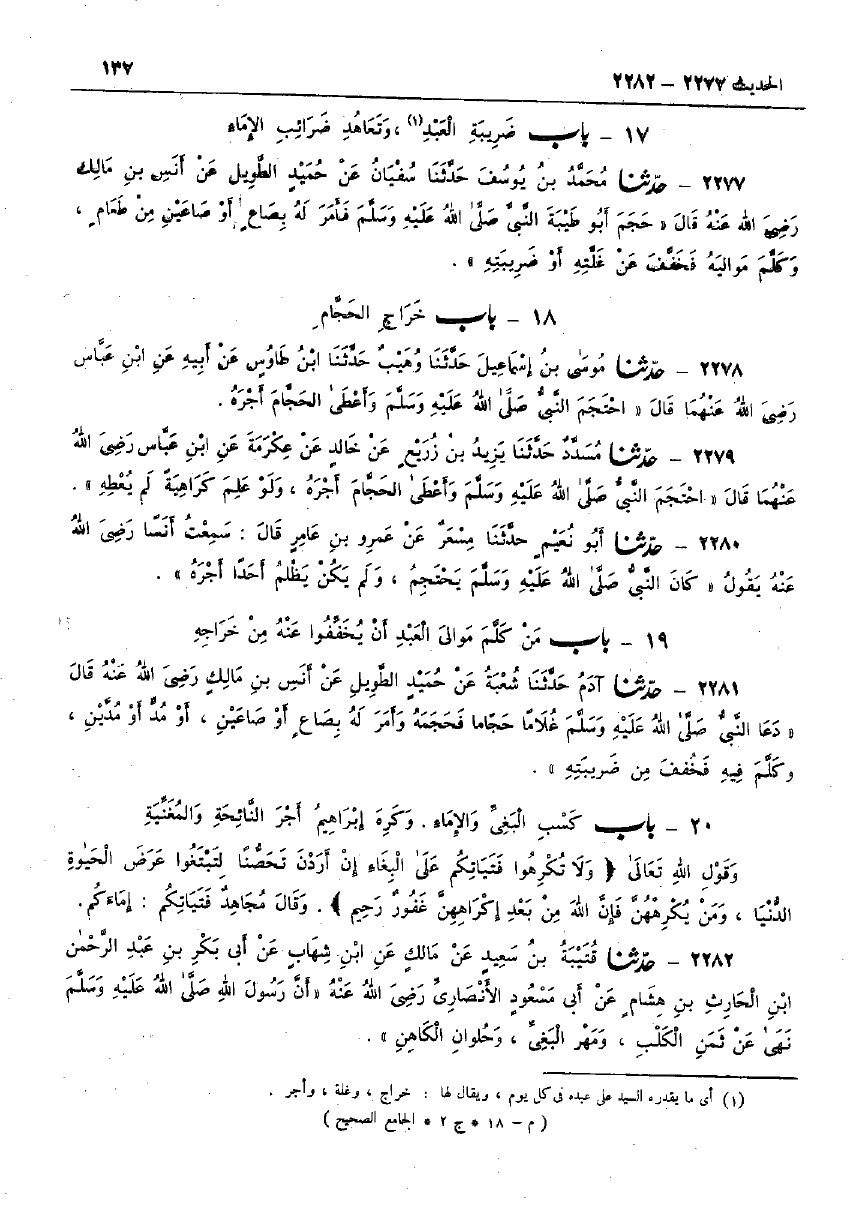 الحديث ٢٢٧٧ – ٢٢٨٢
١٣٧
١٧ – باب ضَرِيبَةِ الْعَبْدِ(١) ، وَتَعَاهُدِ ضَرَائِبِ الإِمَاءِ
٢٢٧٧ – حدّثنا مُحَمَّدُ بنُ يُوسُفَ حَدَّثَنَا سُفْيَانُ عَنْ حُمَيْدٍ الطَّوِيلِ عَنْ أَنَسِ بنِ مَالِكٍ
رَضِيَ اللهُ عَنْهُ قَالَ « حَجَمَ أَبُو طَيْبَةَ النَّبِيَّ صَلَّىٰ اللهُ عَلَيْهِ وَسَلَّمَ فَأَمَرَ لَهُ بِصَاعٍ أَوْ صَاعَيْنِ مِنْ طَعَامٍ ،
وَكَلَّمَ مَوَالِيَهُ فَخَفَّفَ عَنْ غَلَّتِهِ أَوْ ضَرِيبَتِهِ » .
١٨ – باب خَرَاجِ الحَجَّامِ
٢٢٧٨ – حدّثنا مُوسَىٰ بنُ إِسْمَاعِيلَ حَدَّثَنَا وُهَيْبٌ حَدَّثَنَا ابْنُ طَاوُسٍ عَنْ أَبِيهِ عَنِ ابْنِ عَبَّاسٍ
رَضِيَ اللهُ عَنْهُمَا قَالَ « احْتَجَمَ النَّبِيُّ صَلَّىٰ اللهُ عَلَيْهِ وَسَلَّمَ وَأَعْطَىٰ الحَجَّامَ أَجْرَهُ .
٢٢٧٩ – حدّثنا مُسَدَّدٌ حَدَّثَنَا يَزِيدُ بنُ زُرَيْعٍ عَنْ خَالِدٍ عَنْ عِكْرِمَةَ عَنِ ابْنِ عَبَّاسٍ رَضِيَ اللهُ
عَنْهُمَا قَالَ « احْتَجَمَ النَّبِيُّ صَلَّىٰ اللهُ عَلَيْهِ وَسَلَّمَ وَأَعْطَىٰ الحَجَّامَ أَجْرَهُ ، وَلَوْ عَلِمَ كَرَاهِيَةً لَم يُعْطِهِ » .
٢٢٨٠ – حدّثنا أَبُو نُعَيْمٍ حدَّثَنَا مِسْعَرٌ عَنْ عَمرِو بنِ عَامِرٍ قَالَ : سَمِعْتُ أَنَسًا رَضِيَ اللهُ
عَنْهُ يَقُولُ « كَانَ النَّبِيُّ صَلَّىٰ اللهُ عَلَيْهِ وَسَلَّمَ يَحْتَجِمُ ، وَلَم يَكُنْ يَظْلِمُ أَحَدًا أَجْرَهُ » .
١٩ – باب مَنْ كَلَّمَ مَوَالِىَ الْعَبْدِ أَنْ يُخَفِّفُوا عَنْهُ مِنْ خَرَاجِهِ
٢٢٨١ – حدّثنا آدَمُ حَدَّثَنَا شُعْبَةُ عَنْ حُمَيْدٍ الطَّوِيلِ عَنْ أَنَسِ بنِ مَالِكٍ رَضِيَ اللهُ عَنْهُ قَالَ
« دَعَا النَّبِيُّ صَلَّىٰ اللهُ عَلَيْهِ وَسَلَّمَ غُلَامًا حَجَّاما فَحَجَمَهُ وَأَمَرَ لَهُ بِصَاعٍ أَوْ صَاعَيْنِ ، أَوْ مُدٍّ أَوْ مُدَّيْنِ ،
وكَلَّمَ فِيهِ فَخُفِفَ مِن ضَرِيبَتِهِ » .
٢٠ – باب كَسْبِ الْبَغِىِّ وَالإِمَاءِ . وَكَرِهَ إِبْرَاهِيمُ أَجْرَ النَّائِحَةِ وَالمُغَنِّيَةِ
وَقَوْلِ اللهِ تَعَالَىٰ ﴿ وَلَا تُكْرِهُوا فَتَيَاتِكُم عَلَىٰ الْبِغَاءِ إِنْ أَرَدْنَ تَحَصُّنًا لِتَبْتَغُوا عَرَضَ الْحَيٰوةِ
الدُّنْيَا ، وَمَنْ يُكْرِهْهُنَّ فَإِنَّ اللهَ مِنْ بَعْدِ إِكْرَاهِهِنَّ غَفُورٌ رَحِيم ﴾ . وَقَالَ مُجَاهِدٌ فَتَيَاتِكُم : إِمَاءَكُم.
٢٢٨٢ – حدّثنا قُتَيْبَةُ بنُ سَعِيدٍ عَنْ مَالِكٍ عَنِ ابْنِ شِهَابٍ عَنْ أَبِى بَكْرِ بنِ عَبْدِ الرَّحْمٰنِ
ابْنِ الْحَارِثِ بنِ هِشَامٍ عَنْ أَبِى مَسْعُودٍ الأَنْصَارِىِّ رَضِيَ اللهُ عَنْهُ « أَنَّ رَسُولَ اللهِ صَلَّىٰ اللهُ عَلَيْهِ وَسَلَّمَ
نَهَىٰ عَنْ ثَمَنِ الْكَلْبِ ، وَمَهْرِ الْبَغِىِّ ، وَحُلوانِ الْكَاهِنِ » .
(١) أى ما يقدره السيد على عبده فى كل يوم ، ويقال لها : خراج ، وغلة ، وأجر .
( م – ١٨ * ج ٢ * الجامع الصحيح )